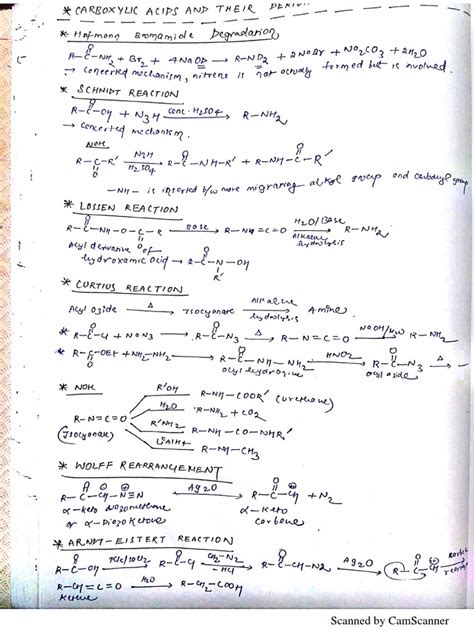 * CARBOXYLIC ACIDS AND THEIR
* Hofmann Bromamide Degradation
R-C-NH2 + Br2 + 4NaOD → R-ND2 + 2NaBr + Na2CO3 + 2H2O
O
→ Concerted mechanism, nitrene is not actually formed but is involved.
* SCHMIDT REACTION
R-C-OH + N3H conc. H2SO4 → R-NH2
O
→ Concerted mechanism.
NOH
R-C-R' N3H H2SO4 → R-C-NH-R' + R-NH-C-R'
O O O
-NH- is inserted b/w more migrating alkyl group and carbonyl group
* LOSSEN REACTION
R-C-NH-O-C-R Base → R-N=C=O H2O/Base Alkaline hydrolysis → R-NH2
O O
Acyl derivative of
hydroxamic acid → R-C-N-OH
O R'
* CURTIUS REACTION
Acyl azide Δ → Isocyanate Alkaline hydrolysis → Amine
* R-C-Cl + NaN3 → R-C-N3 Δ → R-N=C=O NaOH/H2O → R-NH2
O O
* R-C-OEt + NH2-NH2 → R-C-NH-NH2 HNO2 → R-C-N3 Δ →
O O O
acyl hydrazine acyl azide
* NOH
R-N=C=O
(Isocyanate)
R'OH R-NH-COOR' (urethane)
H2O R-NH2 + CO2
R'NH2 R-NH-CO-NHR'
LiAlH4 R-NH-CH3
* WOLFF REARRANGEMENT
R-C-CH-N≡N Ag2O → R-C-CH + N2
O ⊖ ⊕ O
α-keto diazomethane α-keto
or α-Diazo Ketone carbene
* ARNDT-EISTERT REACTION
R-C-OH → R-C-Cl CH2-N2 -HCl → R-C-CH-N2 Ag2O → R-C-CH
O O O O
R-CH=C=O H2O → R-CH2-COOH
Ketene
Scanned by CamScanner